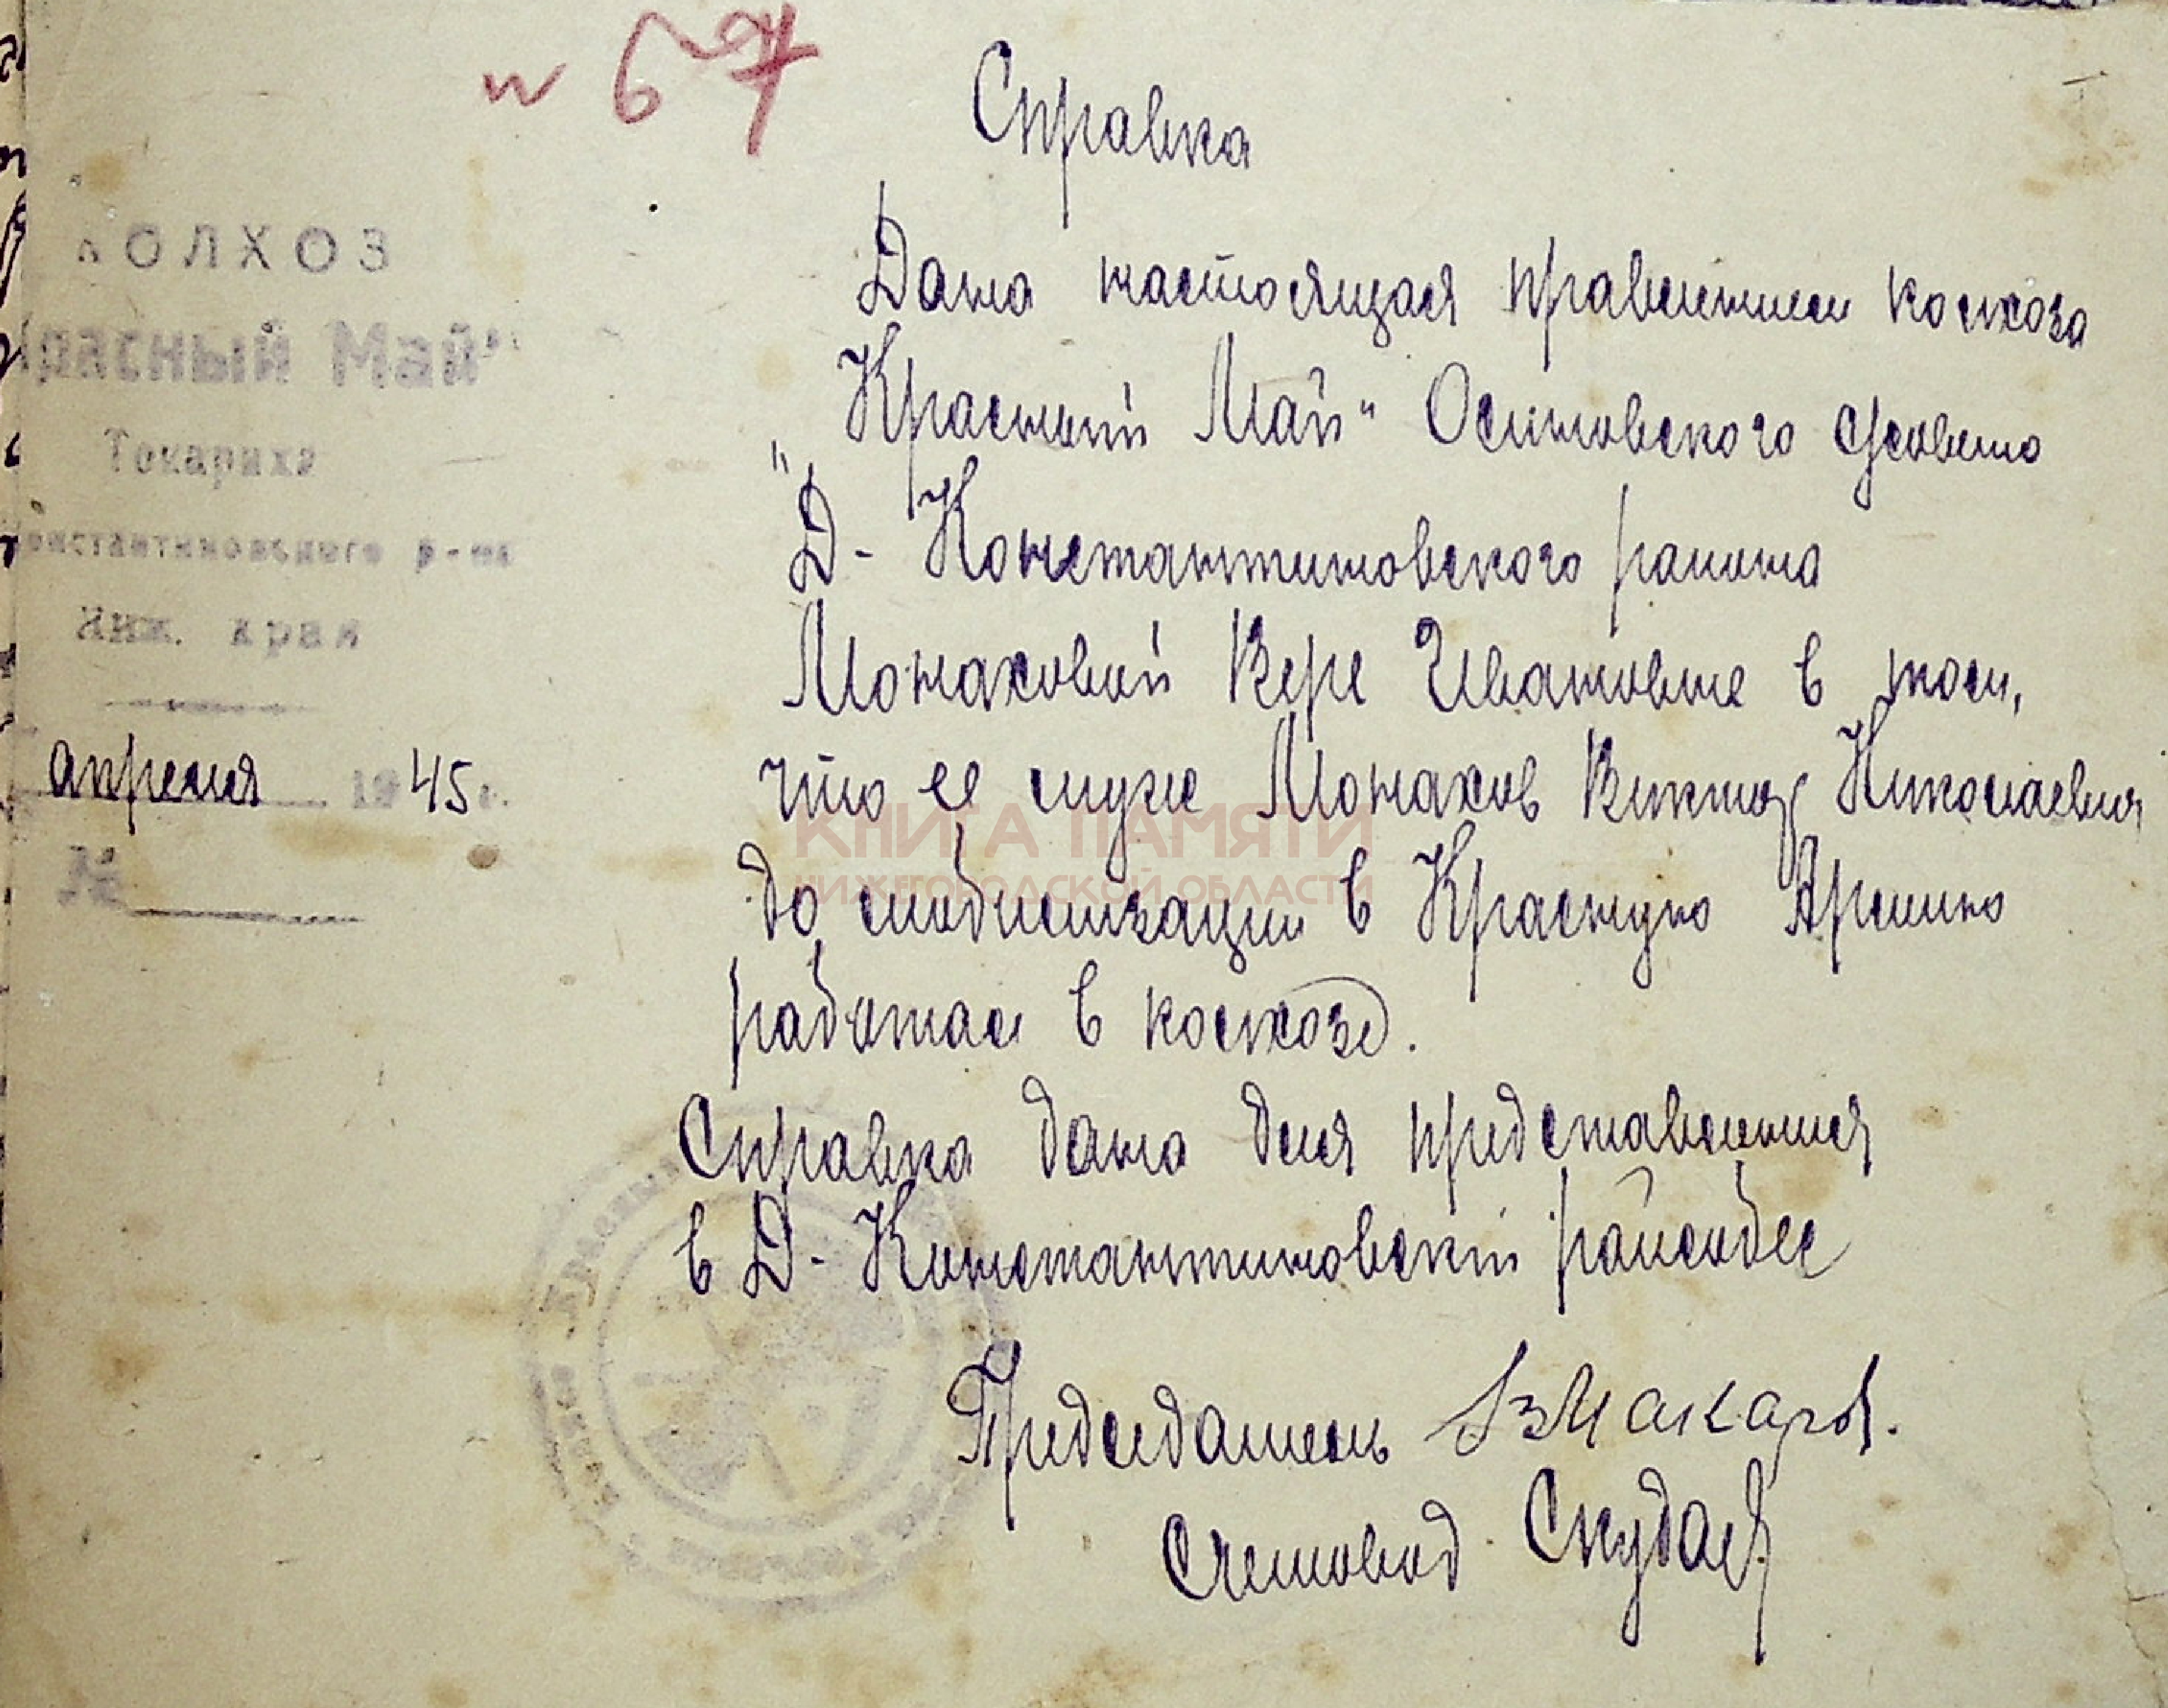 и 67
Справка
КОЛХОЗ
Красный Май"
Токариха
Константиновского р-на
Ниж. края
апреля 1945 г.
№
Дана настоящая правлением колхоза
"Красный Май" Осиповского с/совета
Д-Константиновского района
Монаховой Вере Ивановне в том,
что ее муже Монахов Виктор Николаевич
до мобилизации в Красную Армию
работал в колхозе.
Справка дана для представления
в Д-Константиновский райсобес
Председатель Макаров.
Счетовод
КНИГА ПАМЯТИ
НИЖЕГОРОДСКОЙ ОБЛАСТИ